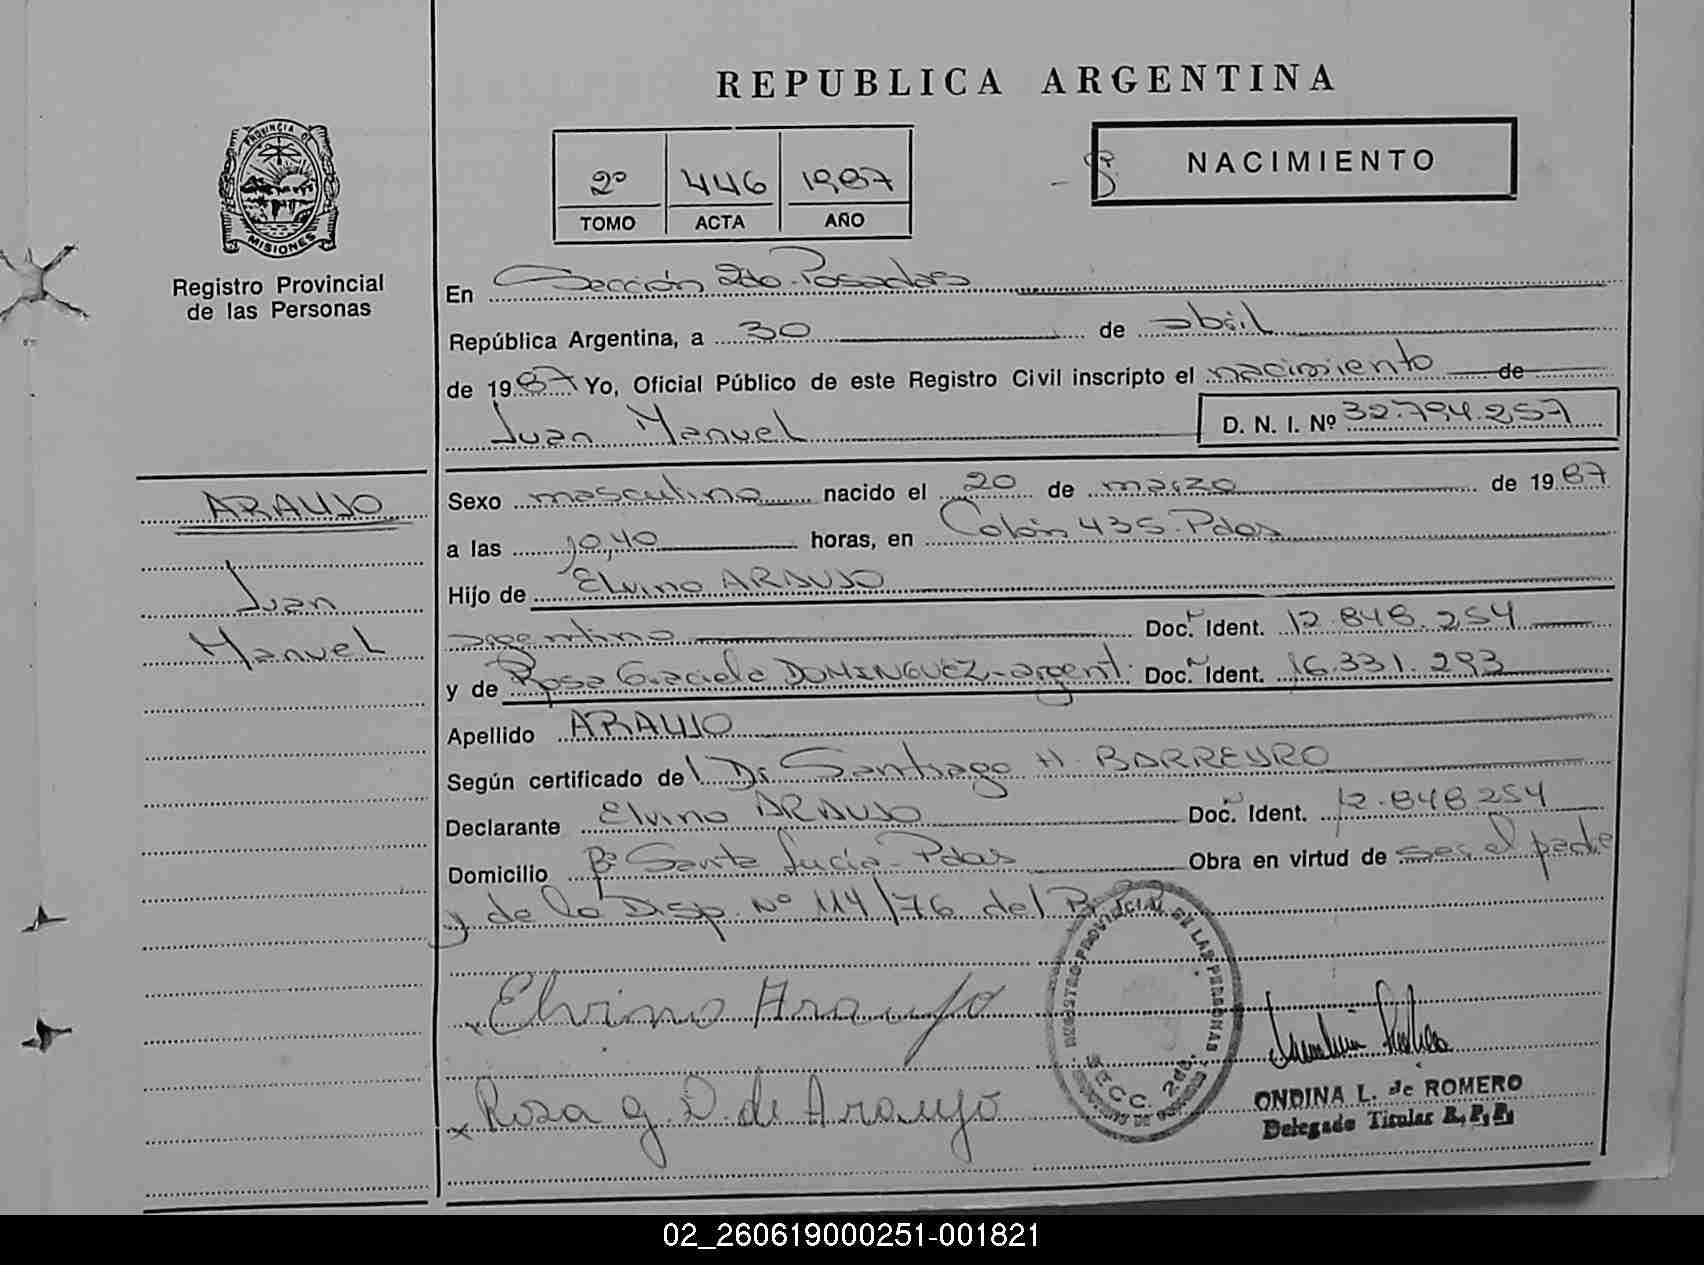 REPUBLICA ARGENTINA
PROVINCIA DE
MISIONES
Registro Provincial
de las Personas
2º 446 1987
TOMO ACTA AÑO
NACIMIENTO
En Sección 2da Posadas
República Argentina, a 30 de abril
de 1987 Yo, Oficial Público de este Registro Civil inscripto el nacimiento de
Juan Manuel D. N. I. Nº 32.794.257
ARAUJO
Juan
Manuel
Sexo masculino nacido el 20 de marzo de 1987
a las 10,40 horas, en Colón 435-Pdas
Hijo de Elvino ARAUJO
argentino Doc. Ident. 12.848.254
y de Rosa Graciela DOMINGUEZ-argent. Doc. Ident. 16.331.293
Apellido ARAUJO
Según certificado del Dr Santiago H. BARREYRO
Declarante Elvino ARAUJO Doc. Ident. 12.848.254
Domicilio Bº Santa Lucía-Pdas Obra en virtud de ser el padre
y de la Disp. Nº 114/76 del
REGISTRO PROVINCIAL DE LAS PERSONAS
SECC. 2da.
Elvino Araujo
Rosa G. D. de Araujo
ONDINA L. de ROMERO
Delegado Titular R.P.P.
02_260619000251-001821